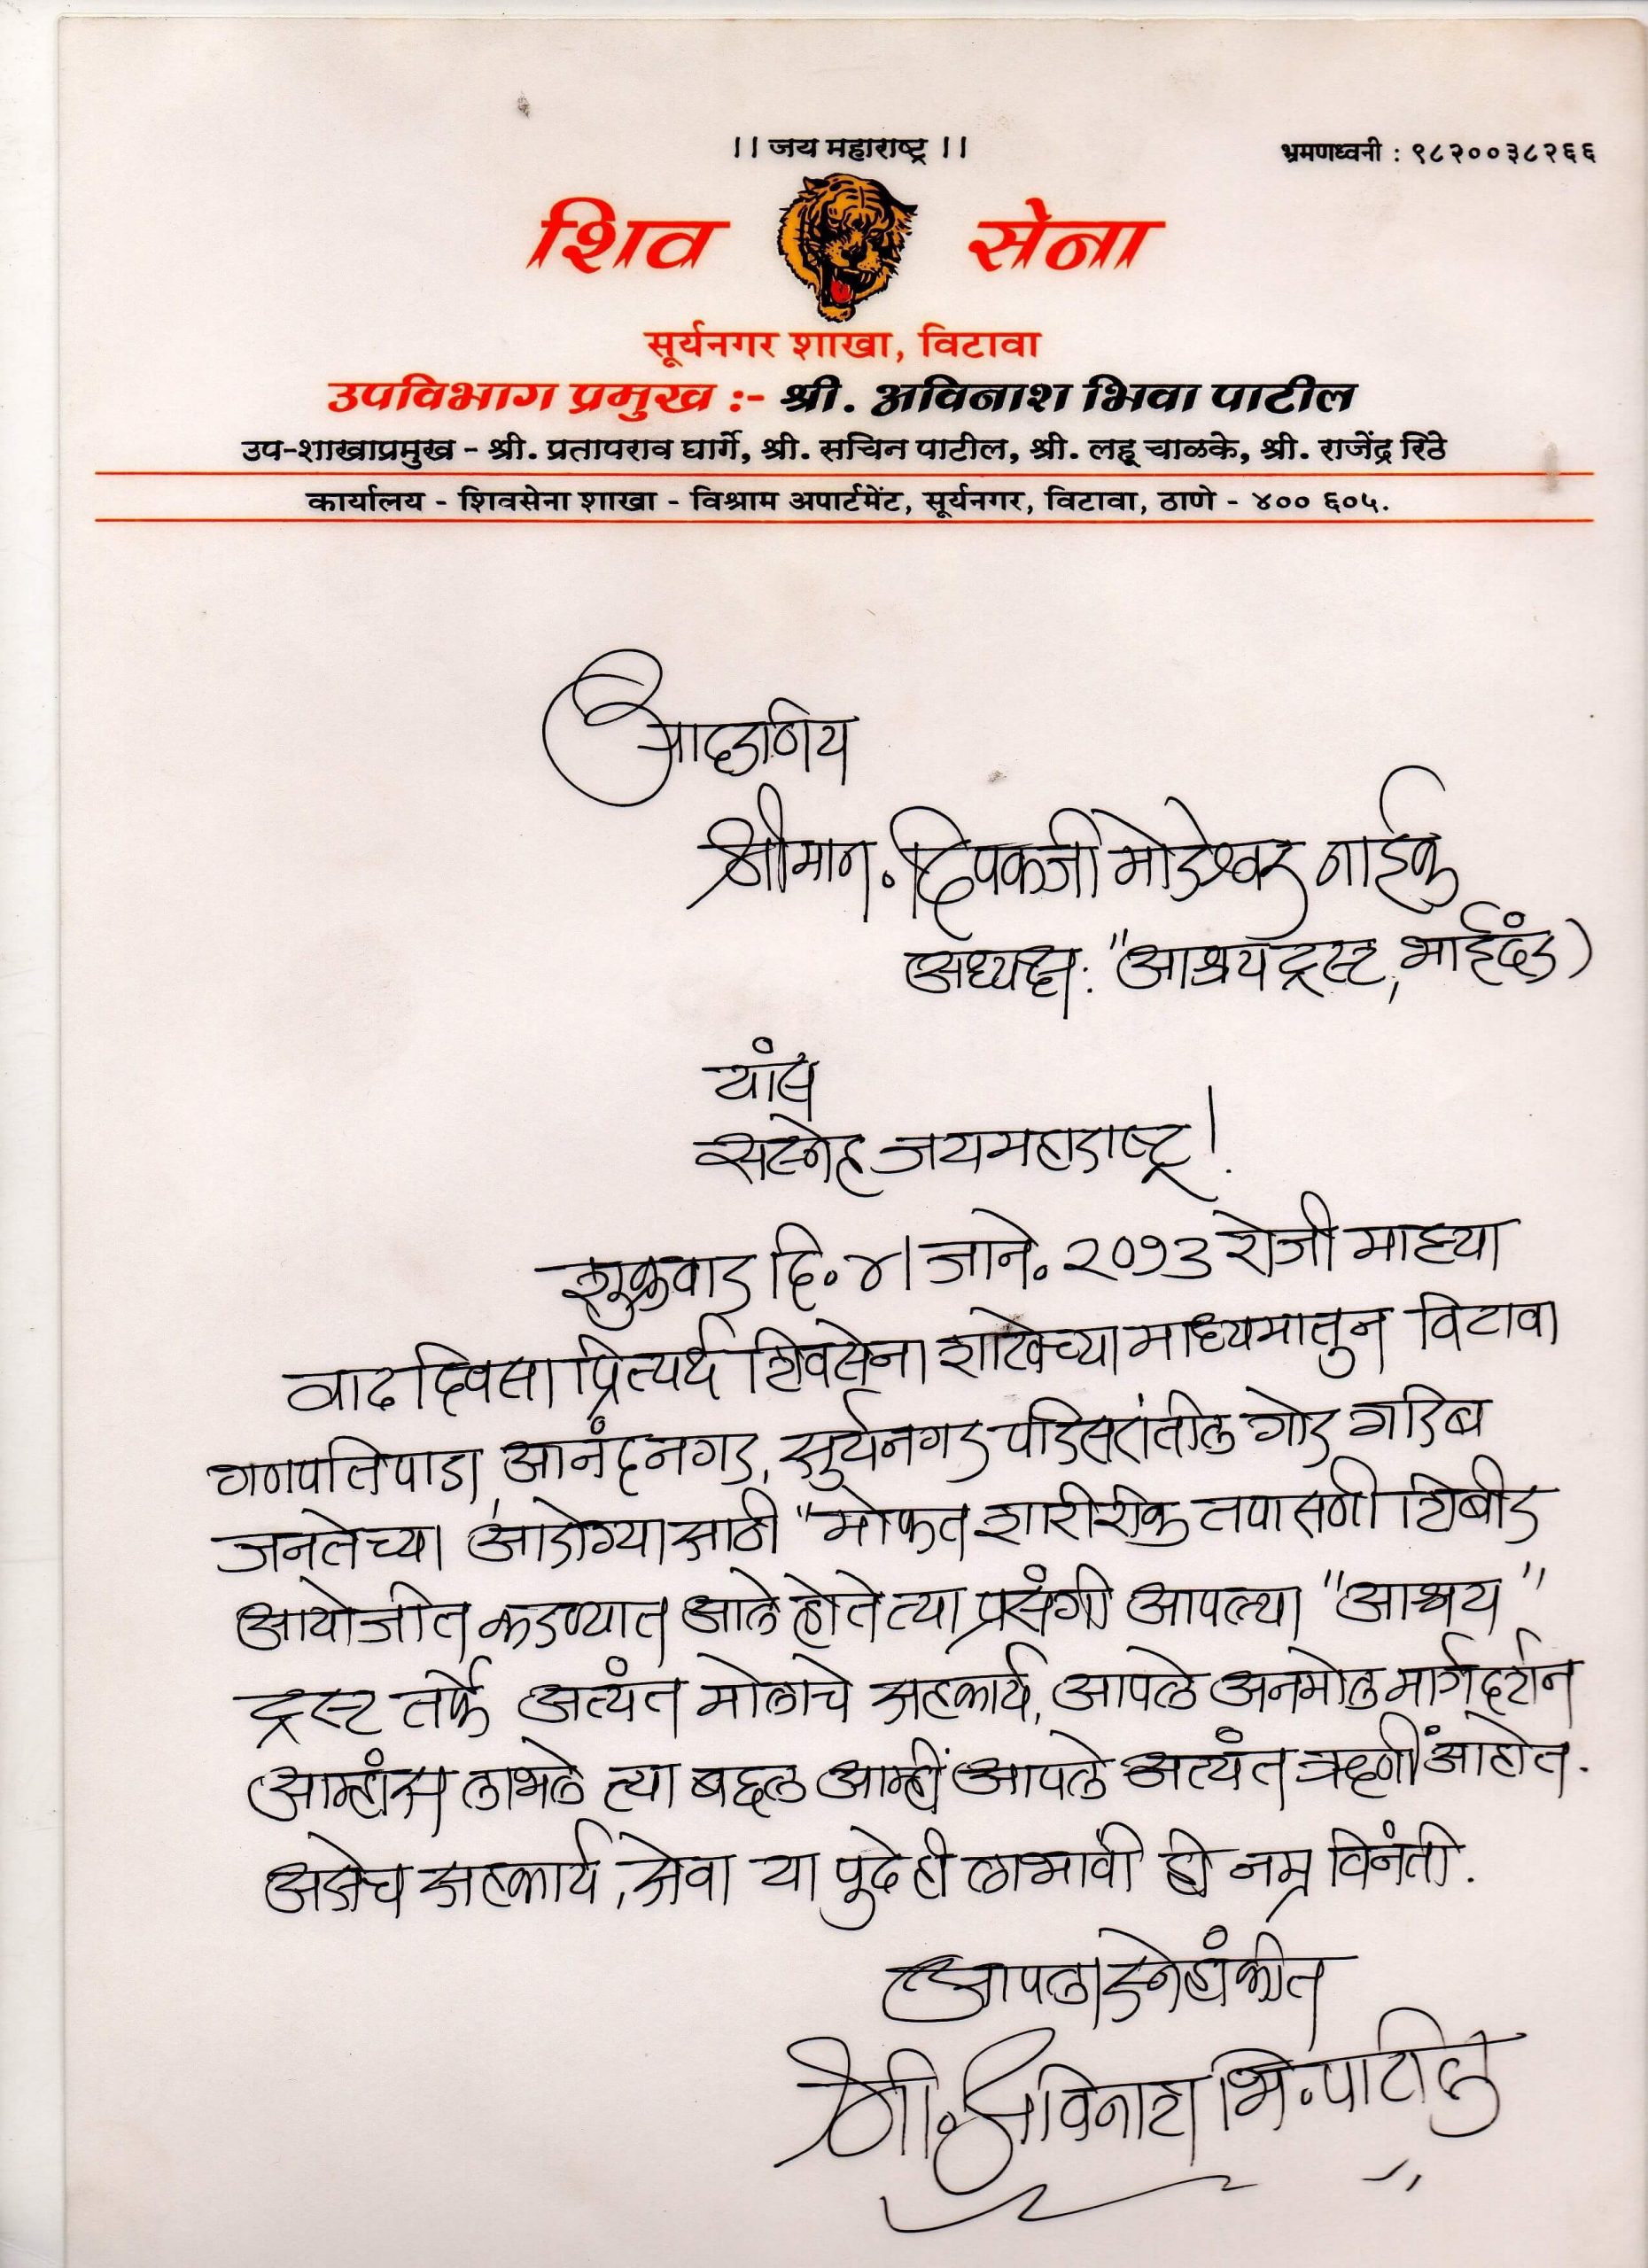 ।। जय महाराष्ट्र ।।
भ्रमणध्वनी : ९८२००३८२६६
शिव सेना
सूर्यनगर शाखा, विटावा
उपविभाग प्रमुख :- श्री. अविनाश भिवा पाटील
उप-शाखाप्रमुख - श्री. प्रतापराव घार्गे, श्री. सचिन पाटील, श्री. लहू चाळके, श्री. राजेंद्र रिठे
कार्यालय - शिवसेना शाखा - विश्राम अपार्टमेंट, सूर्यनगर, विटावा, ठाणे - ४०० ६०५.
आदरणिय
श्रीमान. दिपकजी मोरेश्वर नाईक
अध्यक्ष: "आश्रय ट्रस्ट, भाईंदर)
यांस
सस्नेह जयमहाराष्ट्र!
शुक्रवार दि. ४। जाने. २०१३ रोजी माझ्या
वाढदिवसा प्रित्यर्थ शिवसेना शाखेच्या माध्यमातुन विटावा
गणपतिपाडा, आनंदनगर, सुर्यनगर परिसरांतील गोर गरिब
जनतेच्या आरोग्यासाठी "मोफत शारीरीक तपासणी शिबीर
आयोजीत करण्यात आले होते त्या प्रसंगी आपल्या "आश्रय"
ट्रस्ट तर्फे अत्यंत मोलाचे सहकार्य, आपले अनमोल मार्गदर्शन
आम्हांस लाभले त्या बद्दल आम्हीं आपले अत्यंत ऋणीं आहोत.
असेच सहकार्य, सेवा या पुढेही लाभावी ही नम्र विनंती.
आपला स्नेहांकीत
श्री. अविनाश भि. पाटील